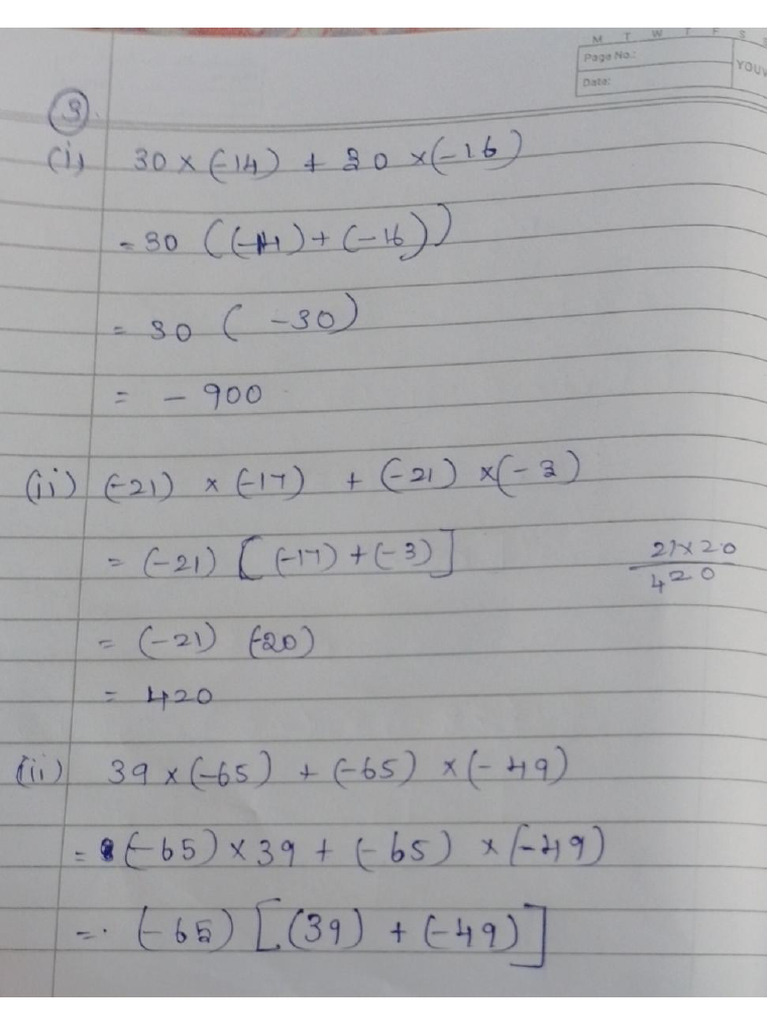 M T W T F S S
Page No.:
Date:
YOUV
3
(i) 30 × (-14) + 30 × (-16)
= 30 ((-14) + (-16))
= 30 ( -30)
= - 900
(ii) (-21) × (-17) + (-21) × (-3)
= (-21) [(-17) + (-3)]
21×20
420
= (-21) (-20)
= 420
(ii) 39 × (-65) + (-65) × (-49)
= (-65) × 39 + (-65) × (-49)
= (-65) [(39) + (-49)]